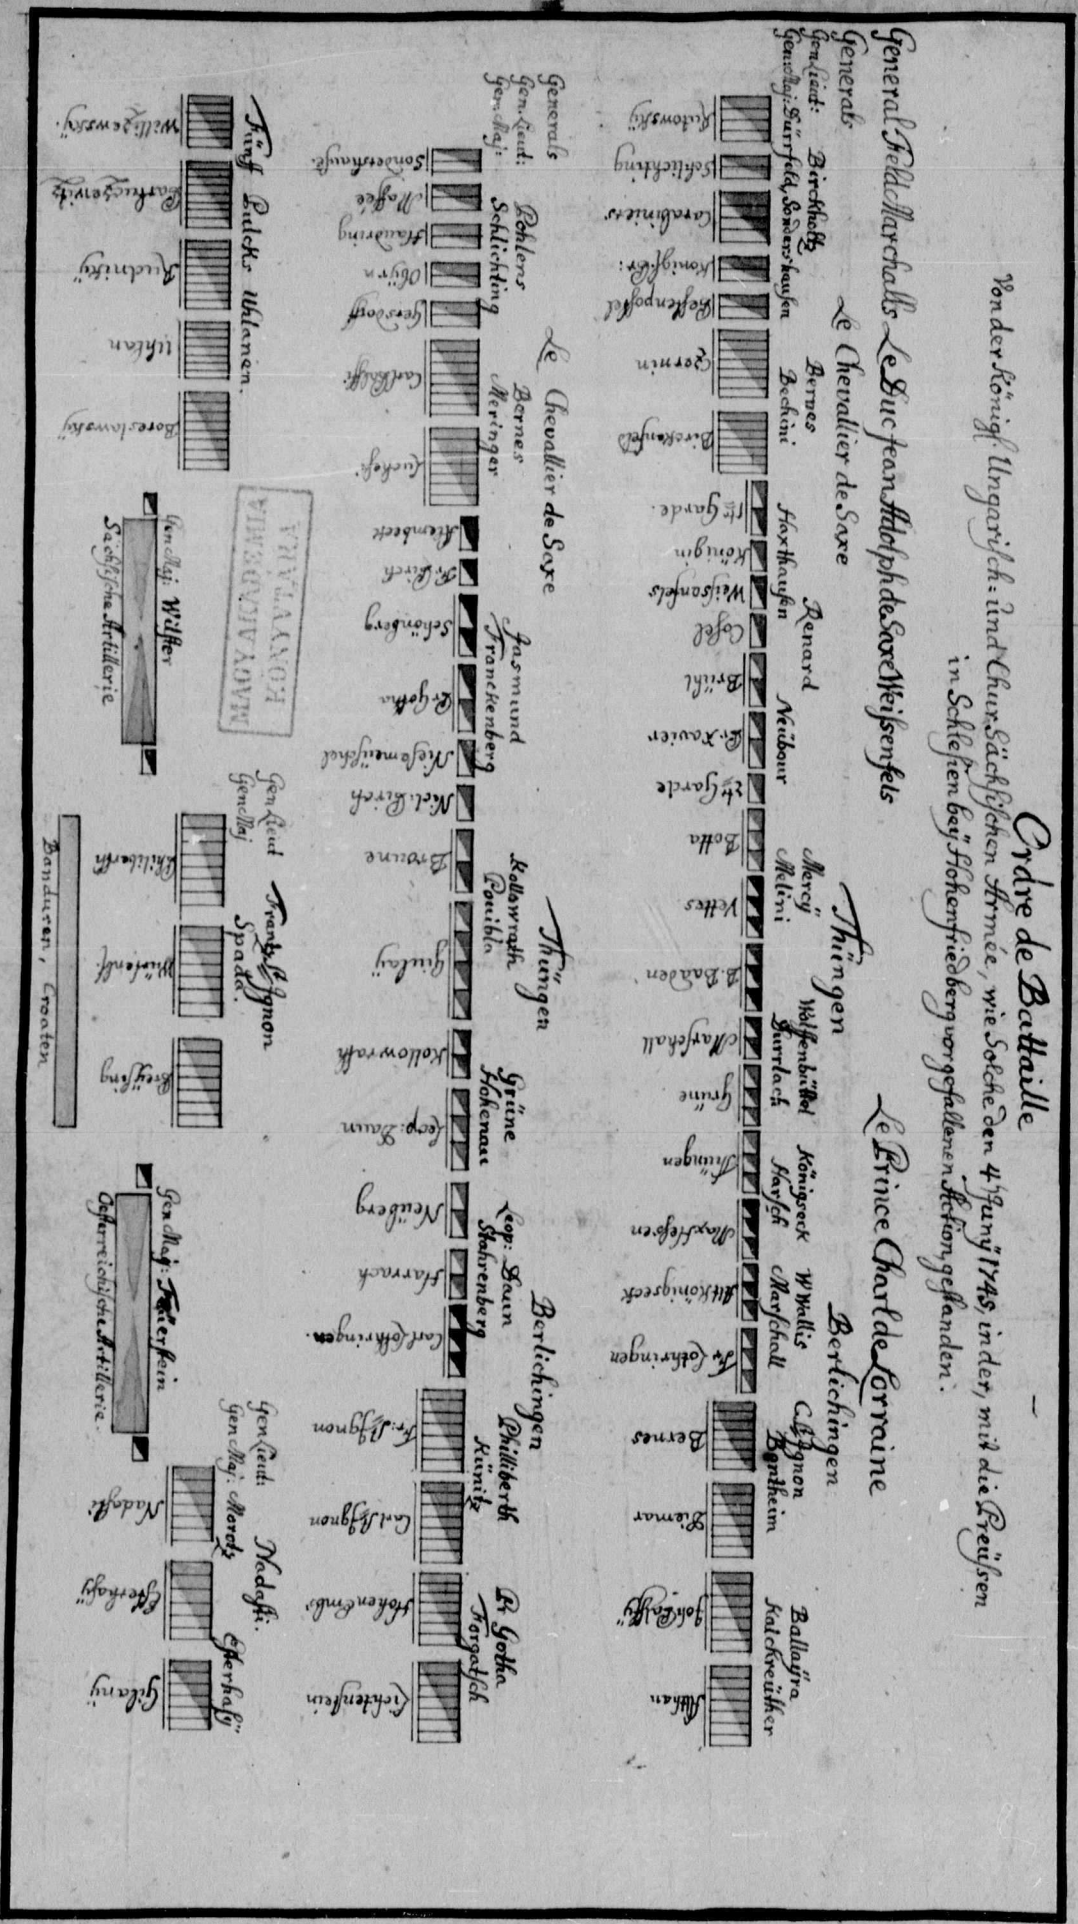 Ordre de Battaille
Von der Königl. Ungarisch: und Chur Sächsischen Armée, wie Solche den 4ten Juny 1745, in der, mit die Preüssen
in Schlesien beÿ Hohenfriedberg vorgefallenen Action, gestanden.
General Field Marchalls Le Duc Jean Adolph de Saxe Weissenfels Le Prince Charl de Lorraine
Generals Le Chevallier de Saxe Thüngen Berlichingen
Gen. Lieut: Birckholtz Bernes Renard Mercÿ Wolffenbüttel Königseck W Wallis Ballaÿra
Gen. Maj: Dürrfeld, Sondershausen Bechini Haxthausen Neübour Melini Durrlach Harsch Marschall Bentheim Kalckreüther
Rutowskÿ Schlichting Carabiniers Königl. Pr: Bestenpostel Czernin Birckenfeld 1te Garde. Königin Weissenfels Cosel Brühl Pr. Xavier 2te Garde Botta Vettes B. Baaden Marschall Grüne Thüngen Max Hessen Alt Königseck Fr. Lothringen Bernes Diemar Joh Palffÿ Althan
Generals Le Chevallier de Saxe Thüngen Berlichingen
Gen. Lieut: Pohlens Bernes Jasmund Kollowrath Grüne Leop: Daun Philliberth Pr Gotha
Gen. Maj: Schlichting Meringer Franckenberg Pouibla Hohenau Stahrenberg Künitz Forgatsch
Sondershauß. Maffée Haudring Obÿrn Gersdorff Carl Palffi Luchesi Allembeck Fr. Pirch Schönberg Pr. Gotha Niesemeüschel Nicl. Pirch Broune Giulaÿ Kollowrath Leop: Daun Neüberg Harrach Carl Lothringen. Fr: St Jgnon Carl St Jgnon Hohen Embs Lichtenstein
Fünff Pulcks Uhlanen.
Willizewskÿ. Bartuczewitz Rudnitzkÿ Uhlan Boreslawskÿ
Gen Lieut Frantz St Jgnon
Gen Maj Spada.
Philiberth Würtenb. Preÿsing
Gen Lieut: Nadasti.
Gen Maj: Morotz Esterhasÿ
Nadasti Esterhasÿ Gilanÿ
Gen Maj: Wilster
Sächsische Artillerie
Gen Maj: Feüerstein
Oesterreichische Artillerie.
Banduren, Croaten
MAGY. AKADÉMIA
KÖNYVTÁRA